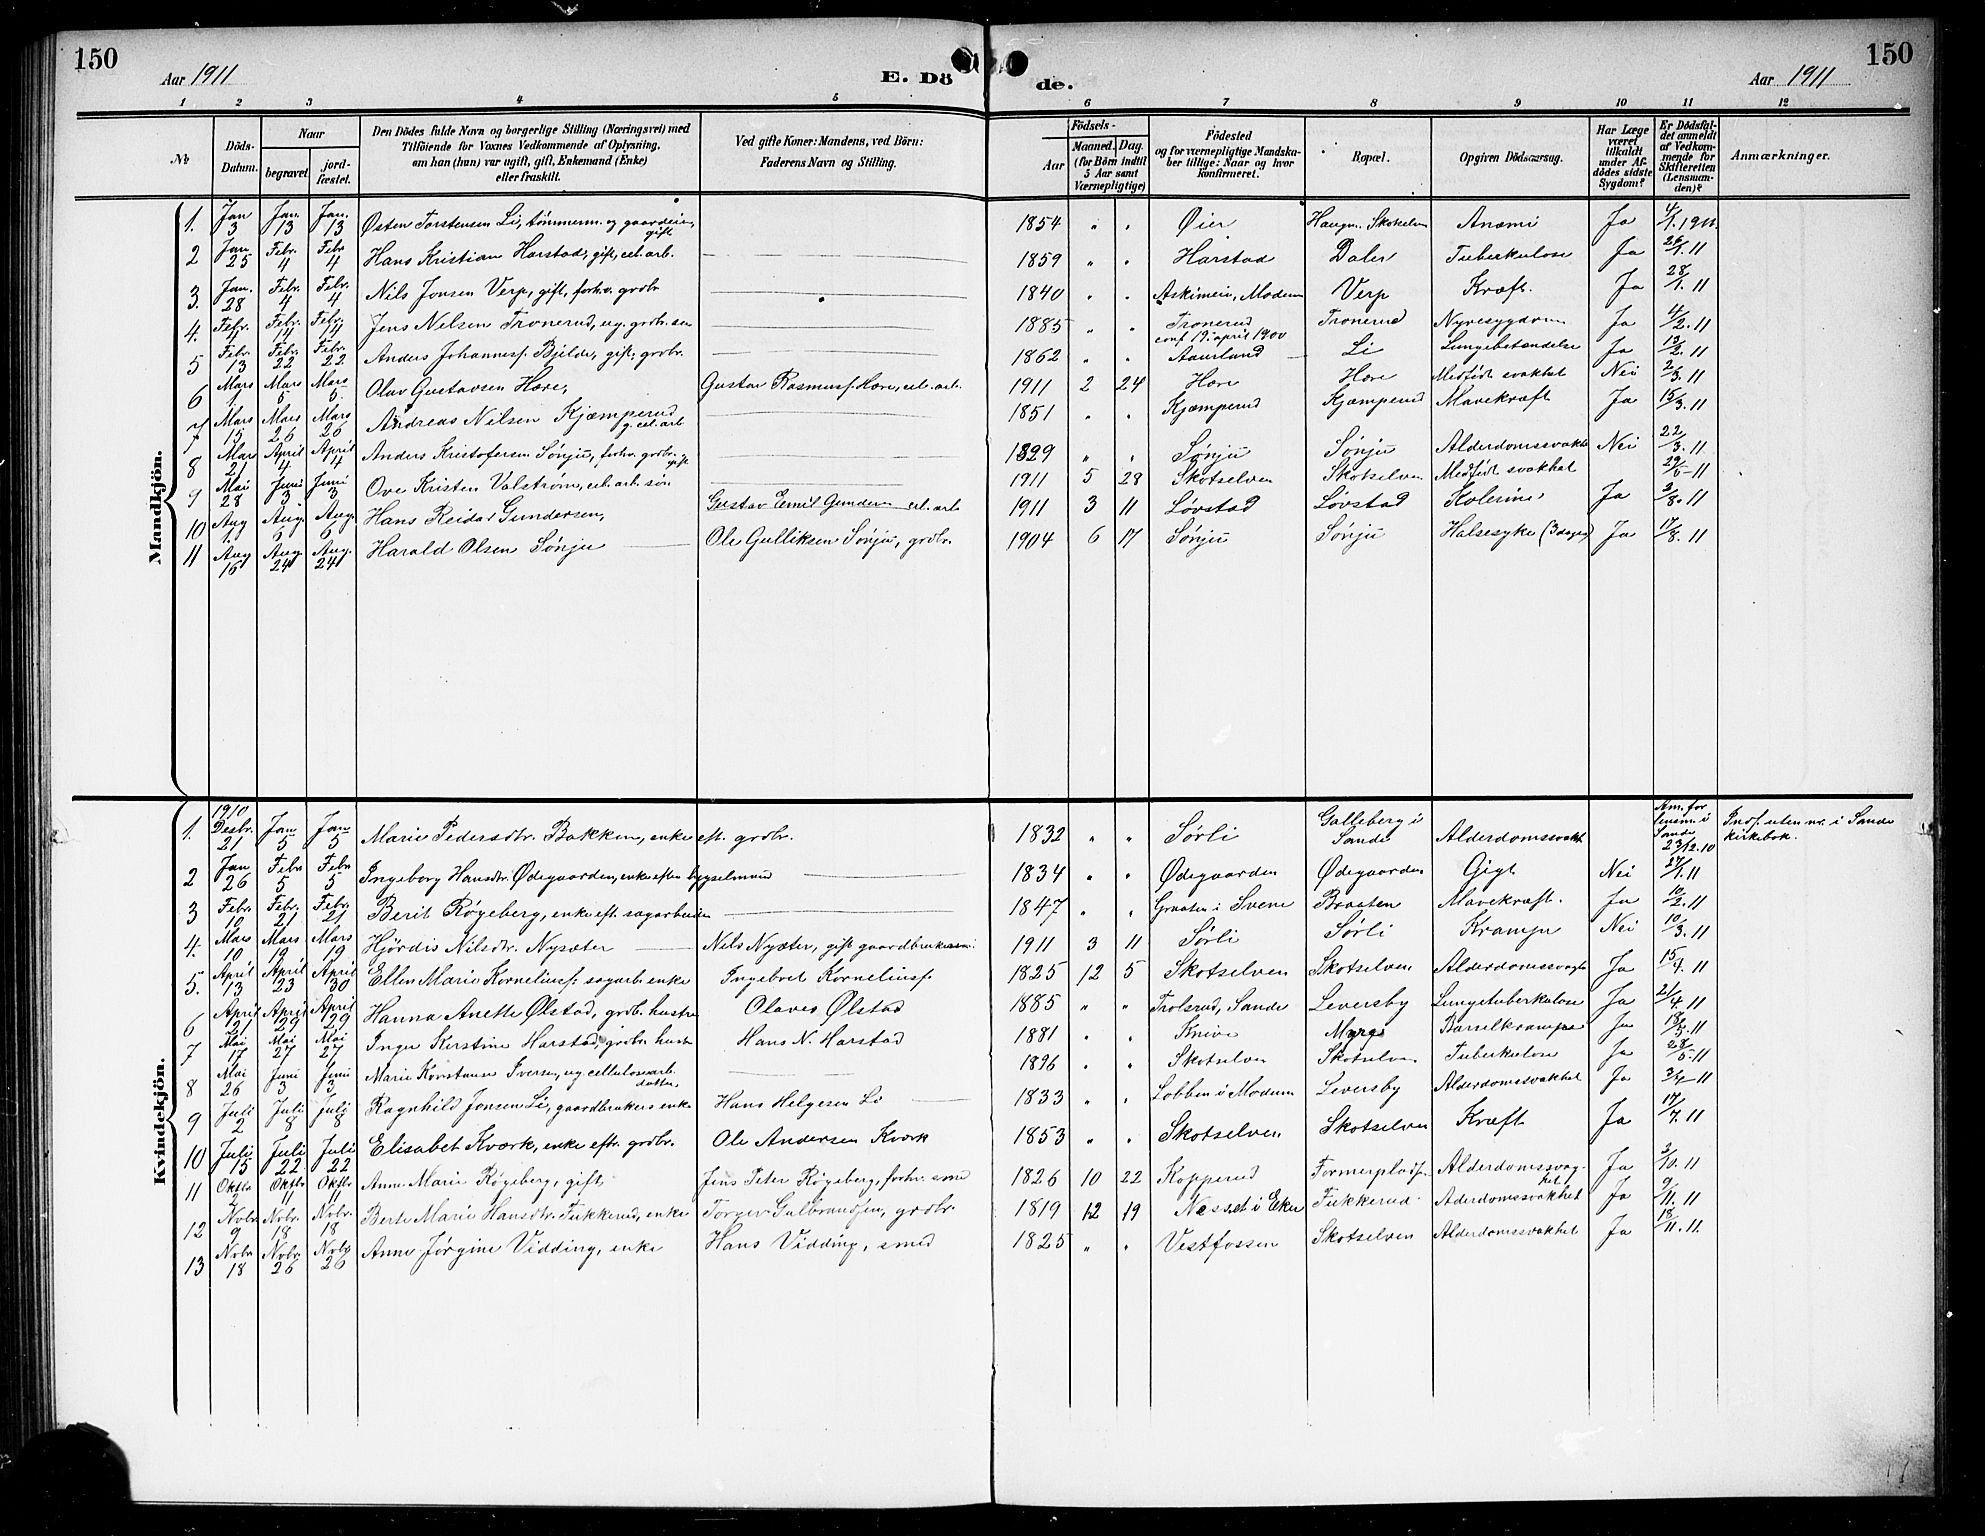 150
Aar 1911
E. Dö
de.
Aar 1911
150
1 2 3 4 5 6 7 8 9 10 11 12
№
Döds-
Datum.
Naar
begravet
jord-
fæstet.
Den Dödes fulde Navn og borgerlige Stilling (Næringsvei) med
Tilföiende for Voxnes Vedkommende af Oplysning,
om han (hun) var ugift, gift, Enkemand (Enke)
eller fraskilt.
Ved gifte Koner: Mandens, ved Börn:
Faderens Navn og Stilling.
Födsels-
Aar
Maaned. Dag.
(for Börn indtil
5 Aar samt
Værnepligtige)
Födested
og for værnepligtige Mandska-
ber tillige: Naar og hvor
konfirmeret.
Bopæl.
Opgiven Dödsaarsag.
Har Læge
været
tilkaldt
under Af-
dödes sidste
Sygdom?
Er Dödsfal-
det anmeldt
af Vedkom-
mende for
Skifteretten
(Lensman-
den)?
Anmærkninger.
Mandkjön.
1. Jan 3 Jan. 13 Jan. 13 Østen Torstensen Li, tömmerm. og gaardeier, gift 1854 " " Øier Haugen Skotselven Anæmi Ja 4/1. 1911
2 Jan. 25 Febr. 4 Febr 4 Hans Kristian Harstad, gift, cel. arb. 1859 " " Harstad Daler Tuberkulose Ja 26/1. 11
3. Jan. 28 Febr. 4 Febr. 4 Nils Jonsen Verp, gift, forhv. grdbr 1840 " " Askimeie, Modum Verp Kræft. Ja 28/1. 11
4. Febr. 4 Febr. 11 Febr. 11 Jens Nelsen Tronerud, ug. grdbr. søn 1885 " " Tronerud conf 19. april 1900 Tronerud Nyresygdom Ja 4/2. 11
5 Febr. 13 Febr. 22 Febr. 22 Anders Johannesf. Bjelde, gift, grdbr. 1862 " " Aaurland Li Lungebetændelse Ja 13/2. 11
6 Mars 1 Mars 5 Mars 5 Olav Gustavsen Hære, Gustav Rasmusf. Hære, cel. arb. 1911 2 24 Hære Hære Medfödt svakhet Nei 2/3. 11
7 Mars 15 Mars 26 Mars 26 Andreas Nilsen Kjæmperud g. cel. arb 1851 " " Kjæmperud Kjæmperud Mavekræft Ja 15/3. 11
8 Mar 21 April 4 April 4 Anders Kristofersen Sønju, forhv. grdbr. gift 1829 " " Sønju Sønju Alderdomssvakhet Nei 22/3. 11
9 Mai 28 Juni 3 Juni 3 Ove Kristen Valstrøm, cel. arb. søn 1911 5 28 Skotselven Skotselven Medfödt svakhet 29/5 - 11
10 Aug 1. Aug. 6 Aug. 6 Hans Reidar Gundersen, Gustav Emil Gundersen cel. arb 1911 3 11 Løvstad Løvstad Kolerine Ja 2/8. 11
11 Aug 16 Aug 24 Aug. 24 Harald Olsen Sønju Ole Gulliksen Sønju, grdbr. 1904 6 17 Sønju Sønju Halsesyke (3 dage) Ja 17/8. 11
Kvindekjön.
1. 1910 Desbr. 21 Jan 5 Jan 5 Marie Pedersdtr. Bakken, enke eft. grdbr. 1832 " " Sørli Galleberg i Sande Alderdomssvakhet Anm. for lensm. i Sande 23/12. 10 Indf. uten nr. i Sande kirkebok.
2 Jan 26 Febr 5 Febr 5 Ingeborg Hansdtr. Ødegaarden, enke efter bygselmand 1834 " " Ødegaarden Ødegaarden Gigt Nei 27/1. 11
3 Febr. 10 Febr. 21 Febr. 21 Berit Røgeberg, enke eft. sagarbeider 1847 " " Graaten i Svene Braaten Mavekræft. Ja 10/2. 11
4. Mars 10 Mars 19 Mars 19 Hjördis Nilsdtr. Nysæter Nils Nysæter, gift gaardbruker 1911 3 11 Sørli Sørli Krampe Nei 10/3. 11
5. April 13 April 23 April 30 Ellen Marie Korneliusf. sagarb. enke Ingebret Korneliusf. 1825 12 5 Skotselven Skotselven Alderdomssvagh Ja 15/4. 11
6 April 21 April 29 April 29 Hanna Anette Ølstad, grdb. hustru Olaves Ølstad 1885 " " Trolsrud, Sande Leversby Lungetuberkulose Ja 21/4. 11
7 Mai 17 Mai 27 Mai 27 Inger Kerstine Harstad, grdbr. hustr Hans N. Harstad 1881 " " Knive Myrge Barselkrampe Ja 18/5. 11
8 Mai 26 Juni 3 Juni 3 Marie Konstanse Iversen, ug. cellulosearb. datter, 1896 " " Skotselven Skotselven Tuberkulose Ja 28/5. 11
9 Juli 2 Juli 8 Juli 8 Ragnhild Jonsen Li, gaardbrukers enke Hans Helgesen Li 1833 " " Lobben i Modum Leversby Alderdomssvakhet Ja 3/7 - 11
10 Juli 15 Juli 22 Juli 22 Elisabet Kværk, enke eftr. grdbr. Ole Andersen Kværk 1853 " " Skotselven Skotselven Kræft Ja 17/7. 11
11 Oktbr 2 Oktbr. 11 Oktbr. 11 Anne Marie Røgeberg, gift, Jens Peter Røgeberg, forhv. smed 1826 10 22 Kopperud Formerpladf. Alderdomssvag-het Ja 3/10. 11
12 Novbr. 9 Novbr. 18 Novbr. 18 Berte Marie Hansdtr. Fukkerud, enke Torger Gulbrandsen, grdbr. 1819 12 19 Næsset i Eker Fukkerud Aderdomssvakhet Ja 9/11. 11
13 Novbr. 18 Novbr. 26 Novbr 26 Anne Jørgine Vidding, enke Hans Vidding, smed 1825 " " Vestfossen Skotselven Alderdomssvakhet Ja 18/11. 11.